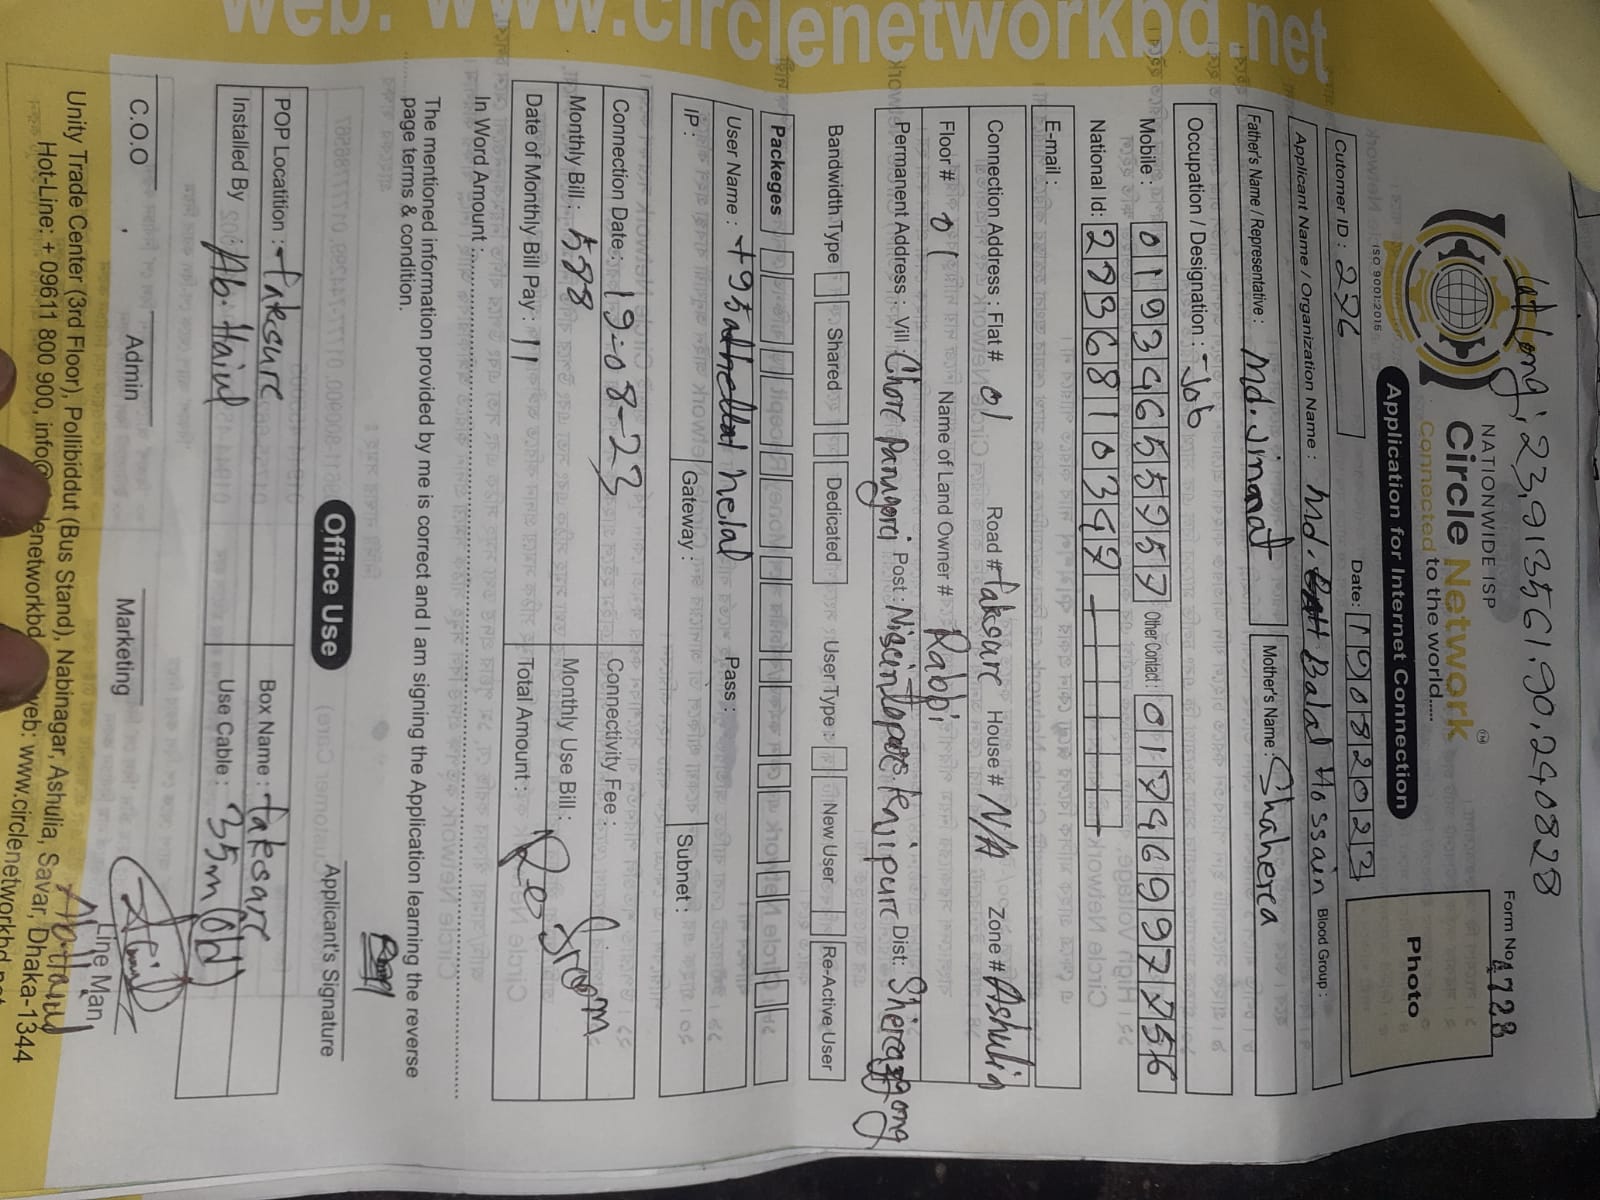 Lat Long; 23,9135619,90,240828
Form No 4728
NATIONWIDE ISP
Circle Network TM
Connected to the world.....
ISO 9001:2015
Application for Internet Connection
Photo
Cutomer ID : 276
Date: 19082023
Applicant Name / Organization Name : Md. Balal Hossain Blood Group :
Father's Name / Representative : Md. Jmanat Mother's Name : Shaherea
Occupation / Designation : Job
Mobile : 01934655957 Other Contact : 01746997756
National Id: 2936810347
E-mail :
Connection Address : Flat # 01 Road # taksure House # N/A Zone # Ashulia
Floor # 01 Name of Land Owner # Rabbi
Permanent Address : Vill: Chore Post: Dist:
Bandwidth Type Shared Dedicated User Type : New User Re-Active User
Packeges
User Name : Pass :
IP : Gateway : Subnet :
Connection Date: 19-08-23 Connectivity Fee :
Monthly Bill : 588 Monthly Use Bill :
Date of Monthly Bill Pay : 11 Total Amount :
In Word Amount :
The mentioned information provided by me is correct and I am signing the Application learning the reverse
page terms & condition.
Applicant's Signature
Office Use
POP Locatition : taksure Box Name : taksare
Installed By Use Cable : 35m (old)
C.O.O Admin Marketing Line Man
Unity Trade Center (3rd Floor), Pollibiddut (Bus Stand), Nabinagar, Ashulia, Savar, Dhaka-1344
Hot-Line: + 09611 800 900, info@ lenetworkbd web: www.circlenetworkbd.net
web: www.circlenetworkbd.net